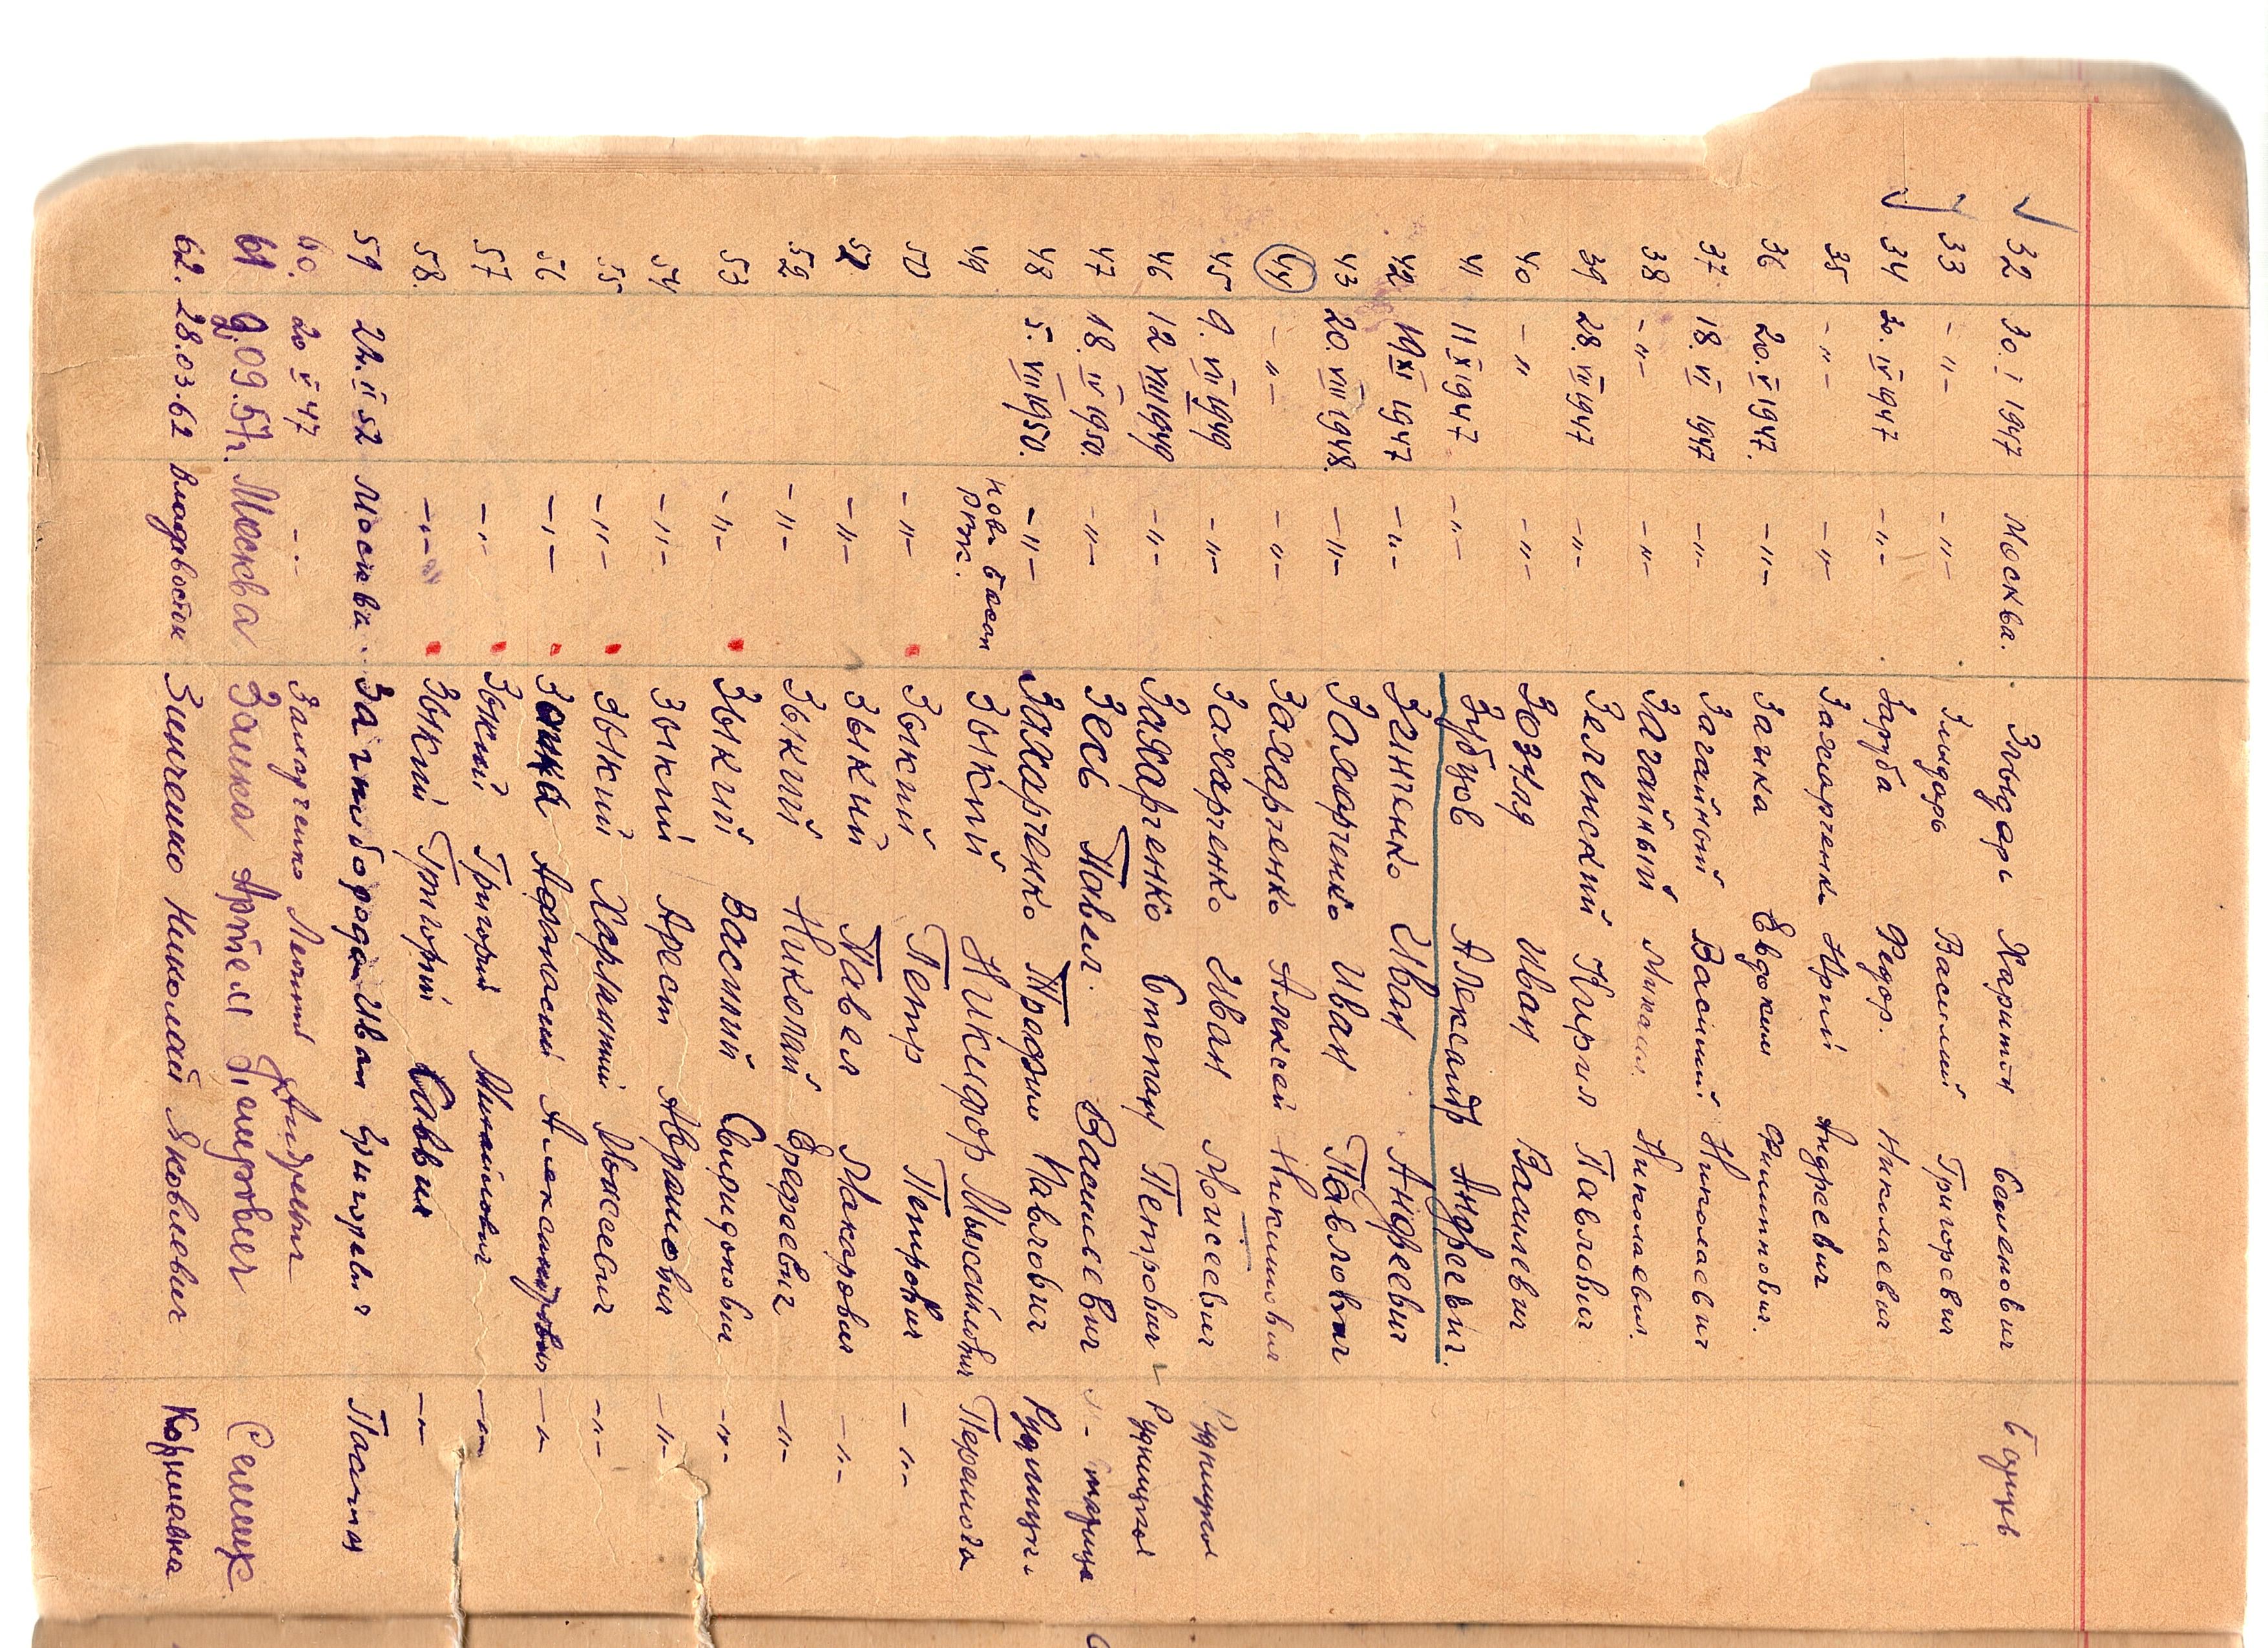 32 30. I 1947 Москва. Звыдарь Харитон Семенович
33 -"- -"- Зиндарь Василий Григоревич
34 30. IV 1947 -"- Заруба Федор. Николаевич
35 -"- -"- Захарченко Юрий Андреевич
36 20. V 1947. -"- Заика Евдоким Филиппович.
37 18. VI 1947 -"- Загайный Василий Николаевич
38 -"- -"- Загайный Михаил Николаевич.
39 28. VII 1947 -"- Зеленский Кирил Павлович
40 -"- -"- Зозуля Иван Василевич
41 11 X 1947 -"- Зубцов Александр Андреевич.
42 19 XI 1947 -"- Зенченко Иван Андреевич
43 20. VIII 1948. -"- Захарченко Иван Павлович
44 -"- -"- Захарченко Алексей Никитович
45 9. VII 1949 -"- Захарченко Иван Мойсеевич Рудницкое
46 12 VIII 1949 -"- Захарченко Степан Петрович Рудницкое
47 18. IV 1950. -"- Зесь Павел. Василевич
48 5. VIII 1950. -"- Захарченко Трофим Павлович
49 Нова Басан Зыкий Никифор Михайлович Перемога
50 -"- Зыкий Петр Петрович -"-
51 -"- Зыкий Павел Макарович -"-
52 -"- Зыкий Николай Ерофеевич -"-
53 -"- Зыкий Василий Свиридонович -"-
54 -"- Зыкий Арест Аврамович -"-
55 -"- Зыкий Харлампий Мойсеевич -"-
56 -"- Заика Афанасий Александрович -"-
57 -"- Зыкий Григорий Михайлович -"-
58. -"- Зыкий Григорий Саввич -"-
59 21. II 52 Москва. Загниборода Иван Григорьевич
60. 20 V 47 -"- Захарченко Леонтий Андреевич
61 2.09.57г. Москва Заика Артем Дмитрович
62. 28.03.62 Владивосток Зинченко Николай Яковлевич Корнавка